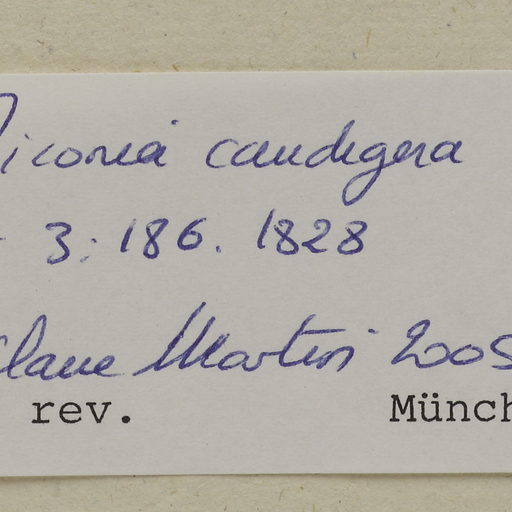 Miconia caudigera
3: 186. 1828
Martin 2005
rev. Münch